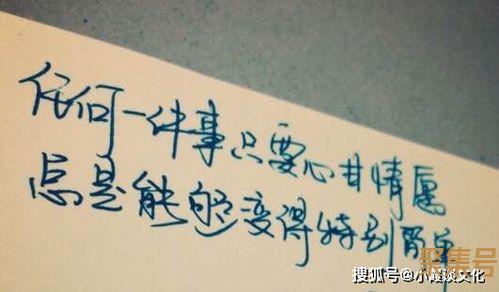 任何一件事只要心甘情愿
总是能够变得特别简单
聚集号
搜狐号@小霞谈文化